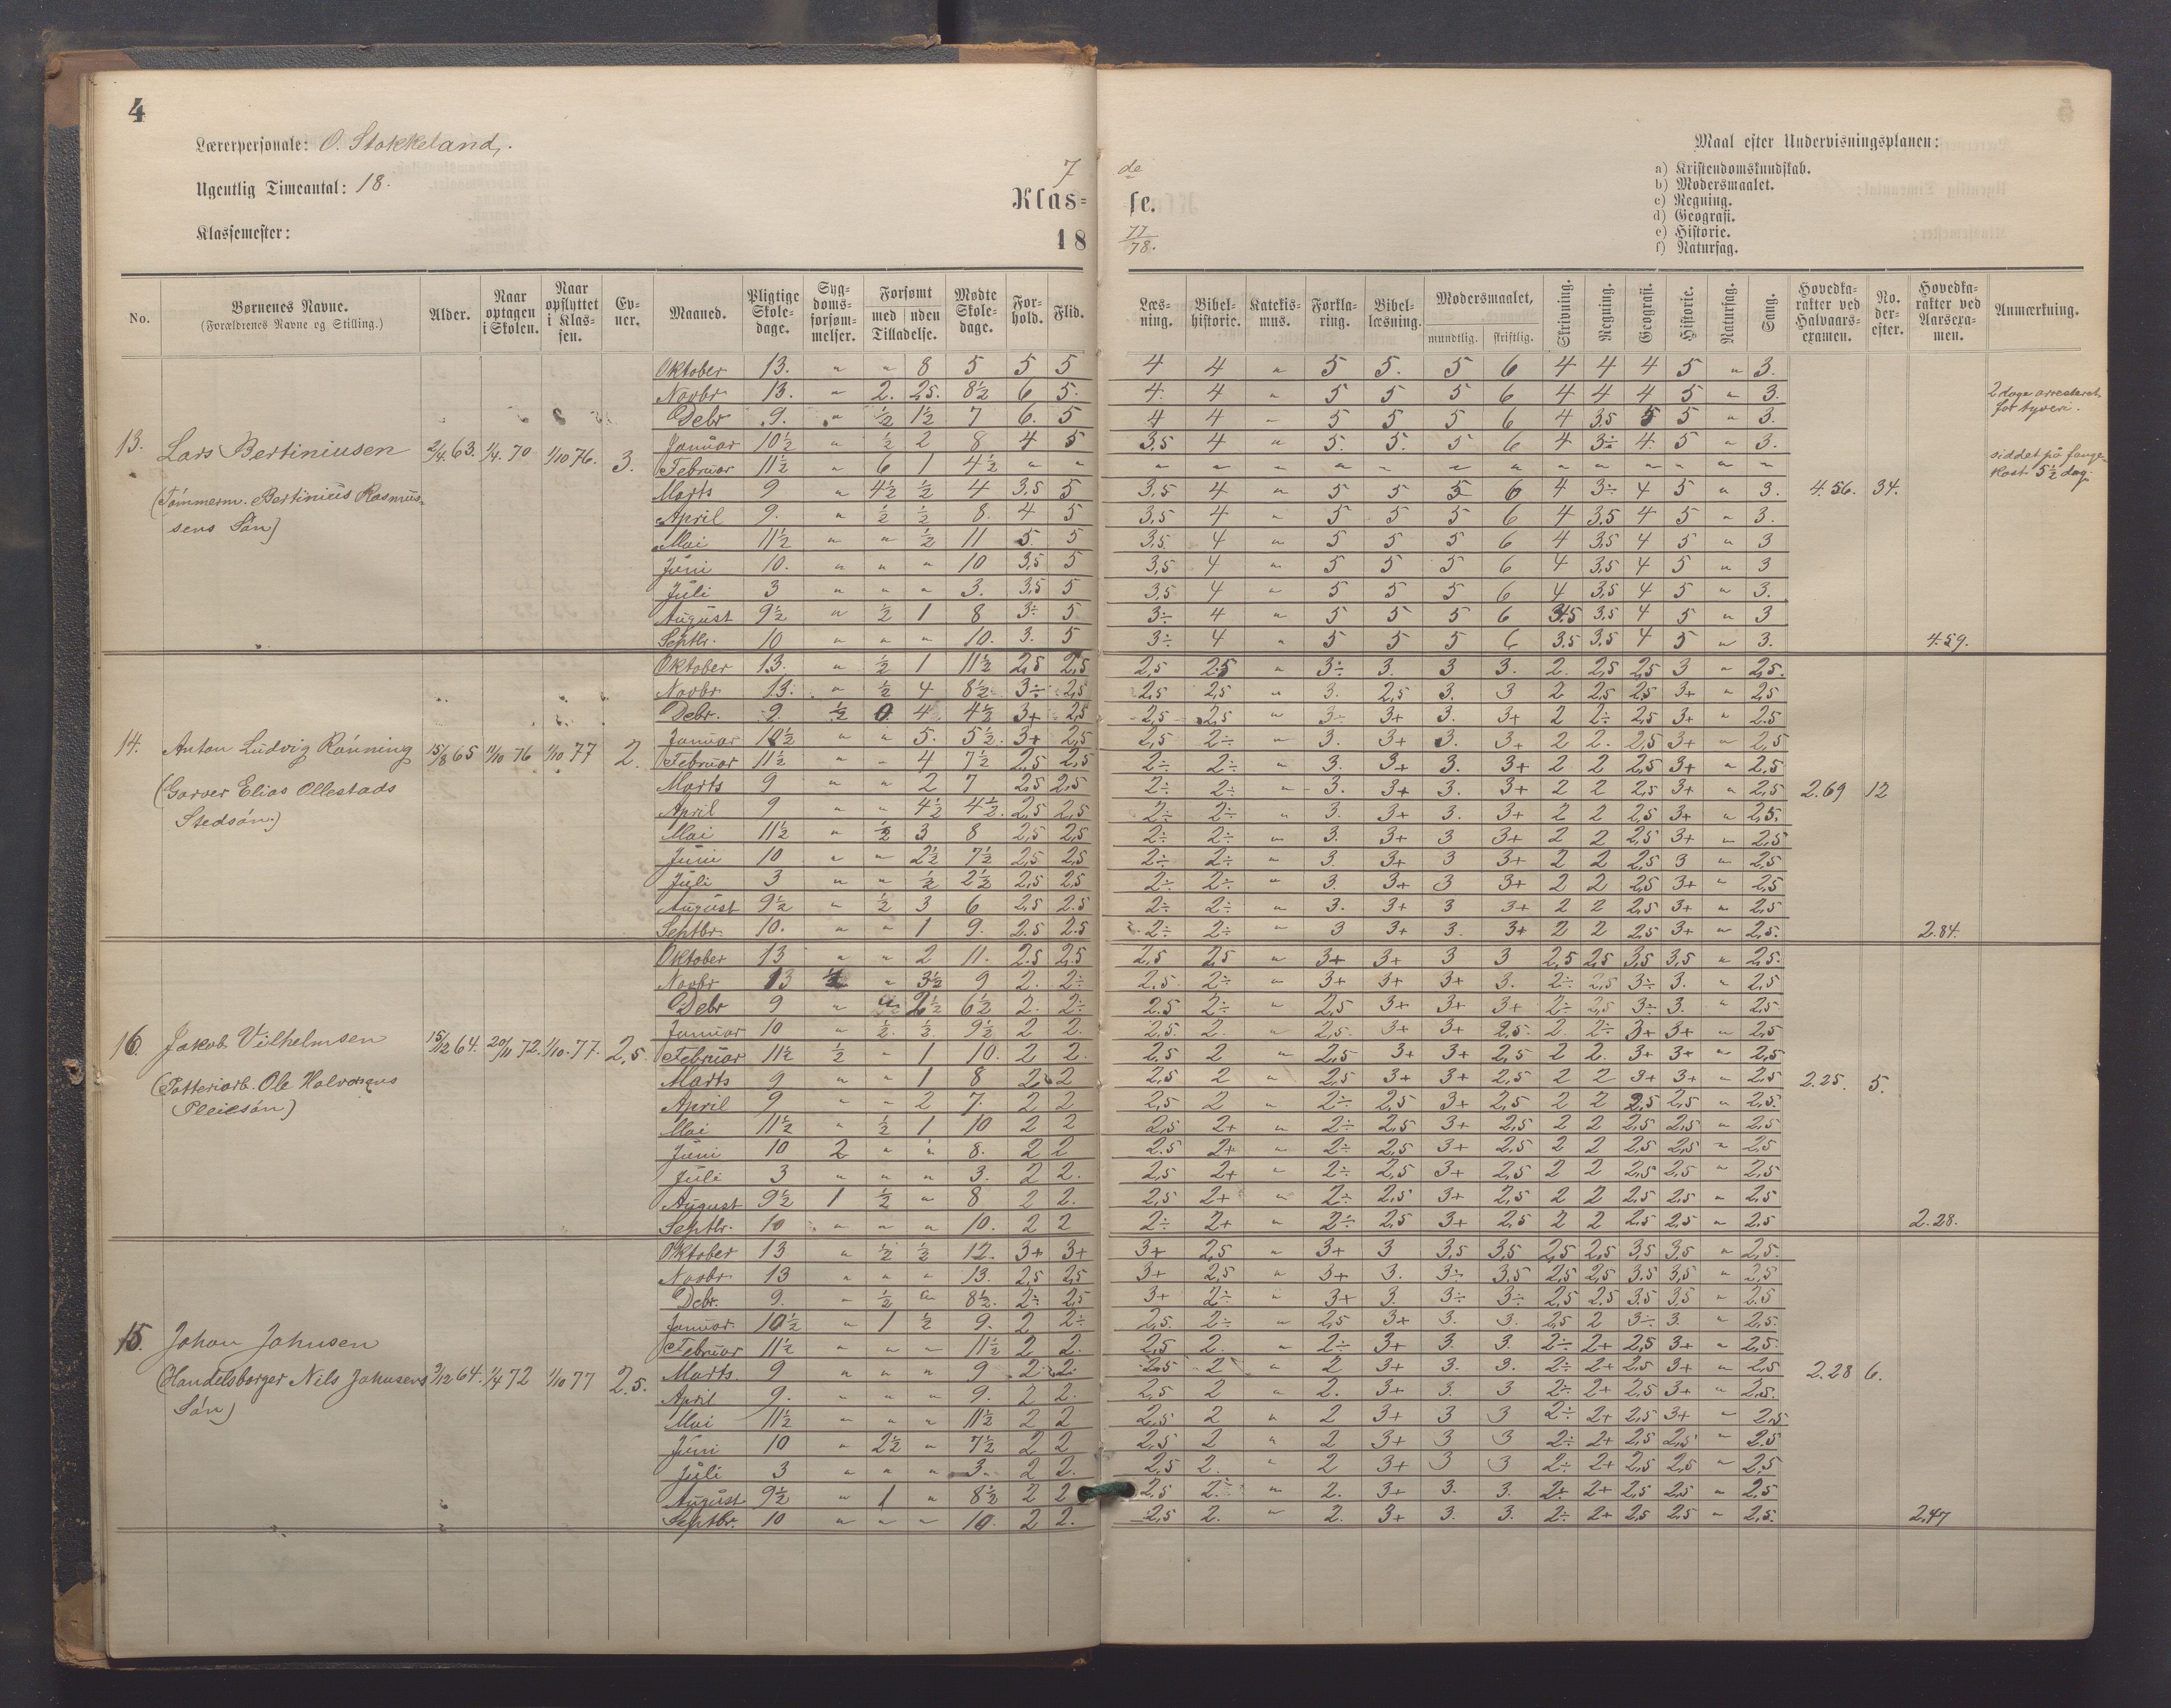 4
Lærerpersonale: O. Stokkeland.
Ugentlig Timeantal: 18.
Klassemester:
7 de
Klas= se.
18 77/78.
Maal efter Undervisningsplanen:
a) Kristendomskundskab.
b) Modersmaalet.
c) Regning.
d) Geografi.
e) Historie.
f) Naturfag.
No. | Børnenes Navne. (Forældrenes Navne og Stilling.) | Alder. | Naar optagen i Skolen. | Naar opflyttet i Klas-sen. | Ev-ner. | Maaned. | Pligtige Skole-dage. | Syg-doms-forsøm-melser. | Forsømt med uden Tilladelse. | Mødte Skole-dage. | For-hold. | Flid. | Læs-ning. | Bibel-historie. | Katekis-mus. | Forkla-ring. | Bibel-læsning. | Modersmaalet, mundtlig. skriftlig. | Skrivning. | Regning. | Geografi. | Historie. | Naturfag. | Sang. | Hovedka-rakter ved Halvaars-examen. | No. der-efter. | Hovedka-rakter ved Aarsexa-men. | Anmærkning.
13. Lars Bertiniusen 2/4 63. 1/4. 70 1/10 76. 3.
(Tömmerm. Bertinius Rasmus-
sens Sön)
Oktober 13. " " 8 5 5 5 4 4 " 5 5. 5 6 4 4 4 5 " 3.
Novbr 13. " 2. 2,5. 8½ 6 5. 4. 4 " 5 5 5 6 4 4 4 5 " 3.
Debr 9. " ½ 1½ 7 6. 5 4 4 " 5 5 5 6 4 3,5 5 5 " 3.
Januar 10½ " ½ 2 8 4 5 3,5 4 " 5. 5. 5 6 4 3÷ 4. 5 " 3.
Februar 11½ " 6 1 4½ " " " " " " " " " " " " " " "
Marts 9 " 4½ ½ 4 3,5 5 3,5 4 " 5 5 5 6 4 3÷ 4 5 " 3.
April 9. " ½ ½ 8. 4 5 3,5 4 " 5 5 5 6 4 3,5 4 5 " 3.
Mai 11½ " " ½ 11 5. 5 3,5. 4 " 5 5 5 6 4 3,5 4 5 " 3
Juni 10. " " " 10 3,5 5 3,5 4 " 5 5 5 6 4 3,5 4 5 " 3
Juli 3 " " " 3. 3,5 5 3,5 4 " 5 5 5 6 4 3,5 4 5 " 3.
August 9½ " ½ 1 8 3÷ 5 3÷ 4 " 5 5 5 6 3,5 3,5 4 5 " 3
Septbr. 10 " " " 10. 3. 5 3÷ 4 " 5 5 5 6 3.5 3,5 4 5 " 3.
4.56. 34. 4.59.
2 dage arresteret
for tyveri.
siddet på fange-
kost 5½ dag.
14. Anton Ludvig Rönning 15/8 65 11/10 76 1/10 77 2.
(Garver Elias Ollestads
Stedsön.)
Oktober 13. " ½ 1 11½ 2,5 2,5 2,5 2.5 " 3÷ 3. 3 3. 2. 2,5 2,5 3 " 2,5.
Novbr 13. " ½ 4 8½ 3÷ 2,5 2,5 2,5 " 3. 2,5 3. 3 2 2,5 2,5 3+ " 2,5
Debr. 9. ½ 0. 4 4½ 3+ 2,5 2,5 2,5 " 3÷ 3+ 3. 3+ 2 2÷ 2,5 3+ " 2.5
Januar 10½ " " 5. 5½. 3+ 2,5 2,5 2÷ " 3. 3+ 3. 3+ 2 2. 2,5 3+ " 2,5
Februar 11½ " " 4 7½ 2,5 2,5 2÷ 2÷ " 3. 3+ 3. 3+ 2 2 2,5 3+ " 2,5
Marts 9 " " 2 7 2,5 2,5 2÷ 2÷ " 3. 3+ 3. 3+ 2 2 2,5 3+ " 2,5
April 9 " " 4½ 4½. 2,5 2,5 2÷ 2÷ " 3. 3+ 3. 3+ 2 2 2,5 3+ " 2,5.
Mai 11½ " ½ 3 8 2,5 2,5 2÷ 2÷ " 3. 3+ 3 3+ 2 2 2,5 3+ " 2,5
Juni 10 " " 2½ 7½ 2,5 2,5 2÷ 2÷ " 3. 3+ 3 3+ 2 2 2,5 3 " 2,5
Juli 3 " " ½ 2½ 2,5 2,5 2÷ 2÷ " 3. 3+ 3 3+ 2 2 2,5 3+ " 2,5
August 9½ " ½ 3 6 2,5 2.5 2÷ 2÷ " 3. 3+ 3 3+ 2 2 2,5 3+ " 2,5
Septbr. 10. " " 1 9. 2.5 2.5 2÷ 2÷ " 3 3+ 3. 3+ 2 2 2,5 3+ " 2,5.
2.69 12 2.84.
16. Jakob Vilhelmsen 15/12 64. 20/11 72. 1/10.77. 2,5.
(Potteriarb. Ole Halvorsens
Pleiesön)
Oktober 13 " " 2 11. 2.5 2.5 2,5 2,5 " 3+ 3+ 3 3 2,5 2,5 3,5 3,5 " 2,5.
Novbr 13 ½ " 3½ 9 2. 2÷ 2.5 2÷ " 3+ 3+ 3+ 3. 2÷ 2,5 3÷ 3. " 2,5
Debr 9 " " 2½ 6½ 2. 2÷ 2.5 2÷ " 2,5 3+ 3+ 3+ 2÷ 2,5 3÷ 3. " 2,5
Januar 10 " ½ ½ 9½ 2 2. 2,5. 2. " 2,5. 3+ 3+ 2,5. 2. 2÷ 3+ 3+ " 2,5
Februar 11½ ½ " 1 10. 2 2. 2,5 2 " 2,5 3+ 3+ 2,5 2 2. 3+ 3+ " 2,5
Marts 9 " " 1 8 2 2 2,5 2 " 2,5 3+ 3+ 2,5 2 2 3+ 3+ " 2,5
April 9 " " 2 7. 2 2 2,5 2 " 2÷ 2,5 3+ 2,5 2 2 2,5 2,5 " 2,5.
Mai 11½ " ½ 1 10 2 2 2,5 2+ " 2÷ 2,5 3+ 2,5 2 2 2,5 2,5 " 2,5
Juni 10 2 " " 8. 2 2 2.5 2+ " 2÷ 2,5 3+ 2,5 2 2 2,5 2,5 " 2,5
Juli 3 " " " 3. 2 2. 2,5 2+ " 2÷ 2,5 3+ 2,5 2 2 2,5 2,5 " 2,5
August 9½ 1 ½ " 8 2 2. 2,5 2+ " 2÷ 2,5 3+ 2,5 2 2 2,5 2,5 " 2,5
Septbr. 10 " " " 10. 2 2 2÷ 2+ " 2÷ 2,5 3+ 2,5 2 2 2,5 2,5 " 2,5
2.25. 5. 2.28.
15. Johan Johnsen 3/12 64. 1/4 72 1/10 77 2.5.
(Handelsborger Nils Johnsens
Sön)
Oktober 13 " ½ ½ 12. 3+ 3+ 3+ 2,5 " 3+ 3 3,5 3,5 2,5 2,5 3,5 3,5 " 2,5.
Novbr 13 " " " 13. 2,5 2,5 3+ 2,5 " 3+ 3. 3÷ 3.5 2,5 2,5 3,5 3,5 " 2,5
Debr. 9. " ½ " 8½. 2÷ 2,5 3+ 2÷ " 3+ 3. 3÷ 3÷ 2,5 2,5 3,5 3,5 " 2,5
Januar. 10½ " 1 ½ 9. 2 2÷ 2,5. 2÷ " 2,5 3+ 3. 3. 2,5 2 3÷ 3 " 2,5.
Februar 11½ " " " 11½ 2 2. 2,5 2. " 2÷ 3+ 3. 3. 2÷ 2+ 2,5 3+ " 2,5.
Marts. 9 " " " 9 2 2 2.5 2 " 2 3+ 3. 3. 2÷ 2+ 2,5 3+ " 2,5
April 9. " " " 9. 2 2. 2,5 2 " 2. 3+ 3. 3 2÷ 2+ 2,5 3+ " 2,5.
Mai 11½ " " " 11½ 2 2 2,5 2 " 2 3+ 3 3 2÷ 2+ 2,5 3+ " 2,5
Juni 10 " 2½ " 7½ 2 2 2,5 2 " 2 3+ 3 3 2÷ 2+ 2,5 2,5 " 2.5
Juli 3 " " " 3. 2 2. 2,5 2. " 2 3+ 3 3 2÷ 2+ 2,5 2,5 " 2,5
August 9½ " 1 " 8½ 2 2 2,5 2. " 2. 3+ 3. 3. 2÷ 2+ 2,5 2,5 " 2,5
Septbr. 10 " " " 10. 2 2. 2,5 2. " 2. 3+ 3. 3. 2÷ 2+ 2,5 2,5 " 2,5.
2.28 6. 2,47